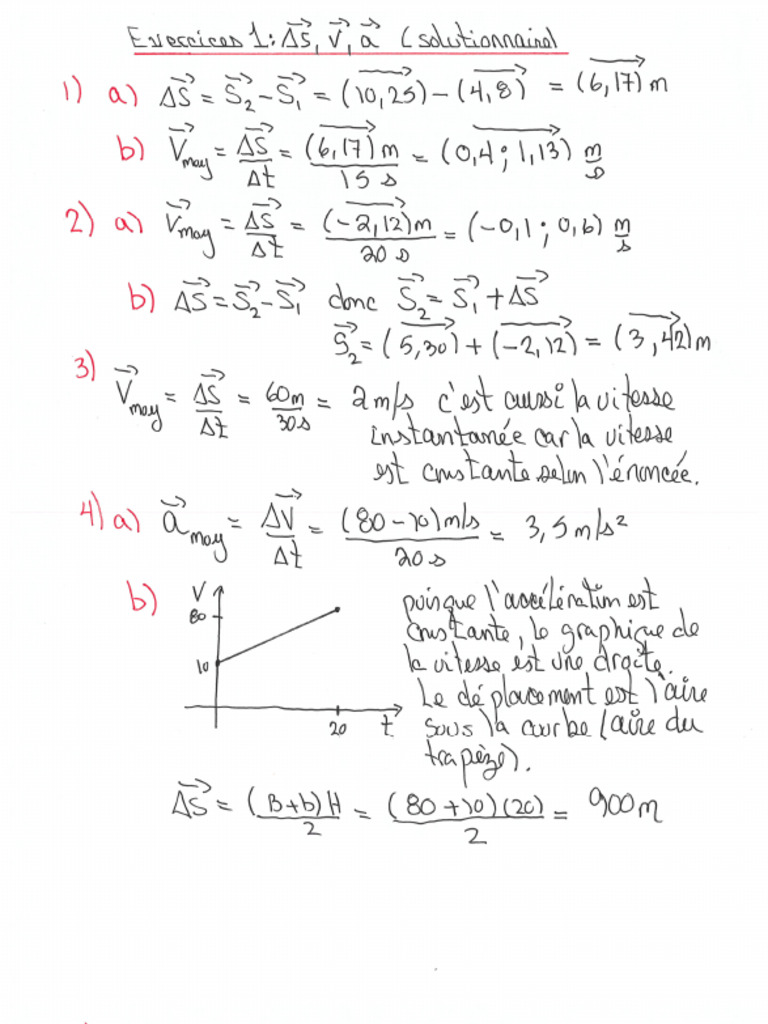 Exercices 1: Δs⃗, v⃗, a⃗ (solutionnaire)
1) a) ΔS⃗ = S⃗₂ - S⃗₁ = (10,25) - (4,8) = (6,17) m
b) V⃗moy = ΔS⃗/Δt = (6,17) m / 15 s = (0,4 ; 1,13) m/s
2) a) V⃗moy = ΔS⃗/Δt = (-2,12) m / 20 s = (-0,1 ; 0,6) m/s
b) ΔS⃗ = S⃗₂ - S⃗₁ donc S⃗₂ = S⃗₁ + ΔS⃗
S⃗₂ = (5,30) + (-2,12) = (3,42) m
3)
V⃗moy = ΔS⃗/Δt = 60m/30s = 2 m/s c'est aussi la vitesse
instantanée car la vitesse
est constante selon l'énoncée.
4) a) a⃗moy = ΔV⃗/Δt = (80-10) m/s / 20 s = 3,5 m/s²
b) V
80
10
20 t
puisque l'accélération est
constante, le graphique de
la vitesse est une droite.
Le déplacement est l'aire
sous la courbe (aire du
trapèze).
ΔS⃗ = (B+b)H/2 = (80+10)(20)/2 = 900 m